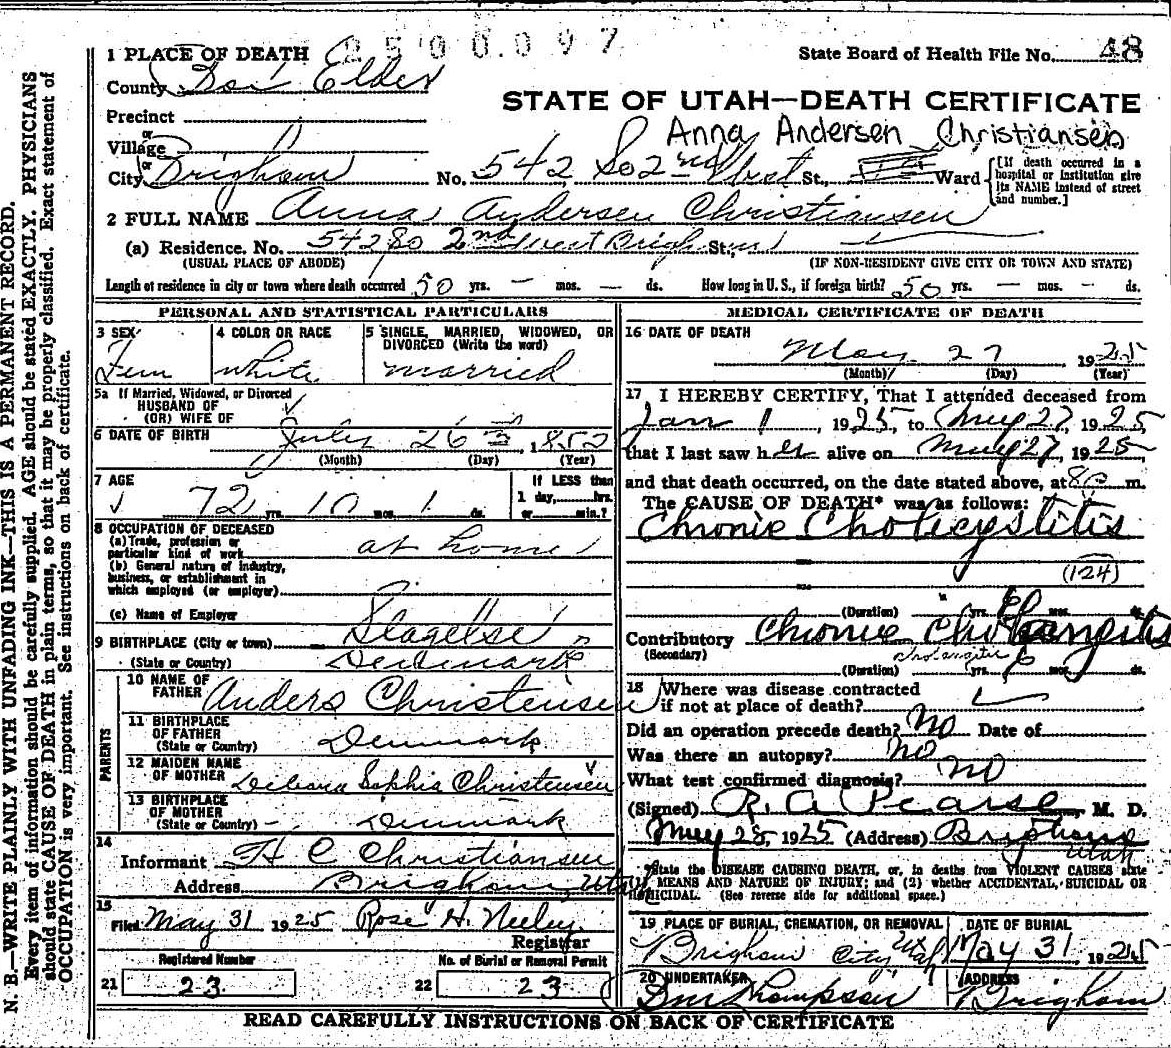 2500097
1 PLACE OF DEATH
State Board of Health File No. 48
County Box Elder
STATE OF UTAH—DEATH CERTIFICATE
Precinct
Anna Andersen Christiansen
or
Village
or
City Brigham No. 542 So 2nd West St., Ward
[If death occurred in a hospital or institution give its NAME instead of street and number.]
2 FULL NAME Anna Andersen Christiansen
(a) Residence. No. 542 So 2nd West Brigham St.,
(USUAL PLACE OF ABODE) (IF NON-RESIDENT GIVE CITY OR TOWN AND STATE)
Length of residence in city or town where death occurred 50 yrs. — mos. — ds. How long in U. S., if foreign birth? 50 yrs. — mos. — ds.
PERSONAL AND STATISTICAL PARTICULARS
3 SEX
Fem
4 COLOR OR RACE
White
5 SINGLE, MARRIED, WIDOWED, OR DIVORCED (Write the word)
married
5a If Married, Widowed, or Divorced
HUSBAND OF
(OR) WIFE OF
6 DATE OF BIRTH July 26 1852
(Month) (Day) (Year)
7 AGE
72 yrs. 10 mos. 1 ds.
If LESS than
1 day, hrs.
or min.?
8 OCCUPATION OF DECEASED
(a) Trade, profession or
particular kind of work at home
(b) General nature of industry,
business, or establishment in
which employed (or employer)
(c) Name of Employer
9 BIRTHPLACE (City or town) Slagelse
(State or Country) Denmark
PARENTS
10 NAME OF
FATHER Anders Christensen
11 BIRTHPLACE
OF FATHER
(State or Country) Denmark
12 MAIDEN NAME
OF MOTHER Sophia Christensen
13 BIRTHPLACE
OF MOTHER
(State or Country) Denmark
14
Informant H C Christiansen
Address Brigham, Utah
15
Filed May 31 1925 Rose H. Neeley
Registrar
Registered Number
No. of Burial or Removal Permit
21 23
22 23
MEDICAL CERTIFICATE OF DEATH
16 DATE OF DEATH
May 27 1925
(Month) (Day) (Year)
17 I HEREBY CERTIFY, That I attended deceased from
Jan 1, 1925, to May 27, 1925
that I last saw her alive on May 27, 1925
and that death occurred, on the date stated above, at m.
The CAUSE OF DEATH* was as follows:
Chronic Cholicystitis
(124)
(Duration) yrs. mos. ds.
Contributory Chronic Cholangitis
(Secondary)
cholangitis
(Duration) yrs. 6 mos. ds.
18 Where was disease contracted
if not at place of death?
Did an operation precede death? No Date of
Was there an autopsy? No
What test confirmed diagnosis? No
(Signed) R. A. Pearse, M. D.
May 28, 1925 (Address) Brigham
Utah
*State the DISEASE CAUSING DEATH, or, in deaths from VIOLENT CAUSES state
MEANS AND NATURE OF INJURY; and (2) whether ACCIDENTAL, SUICIDAL OR
HOMICIDAL. (See reverse side for additional space.)
19 PLACE OF BURIAL, CREMATION, OR REMOVAL
Brigham City Utah
DATE OF BURIAL
May 31, 1925
20 UNDERTAKER
Thompson
ADDRESS
Brigham
READ CAREFULLY INSTRUCTIONS ON BACK OF CERTIFICATE
N. B.—WRITE PLAINLY WITH UNFADING INK—THIS IS A PERMANENT RECORD.
Every item of information should be carefully supplied. AGE should be stated EXACTLY. PHYSICIANS
should state CAUSE OF DEATH in plain terms, so that it may be properly classified. Exact statement of
OCCUPATION is very important. See instructions on back of certificate.